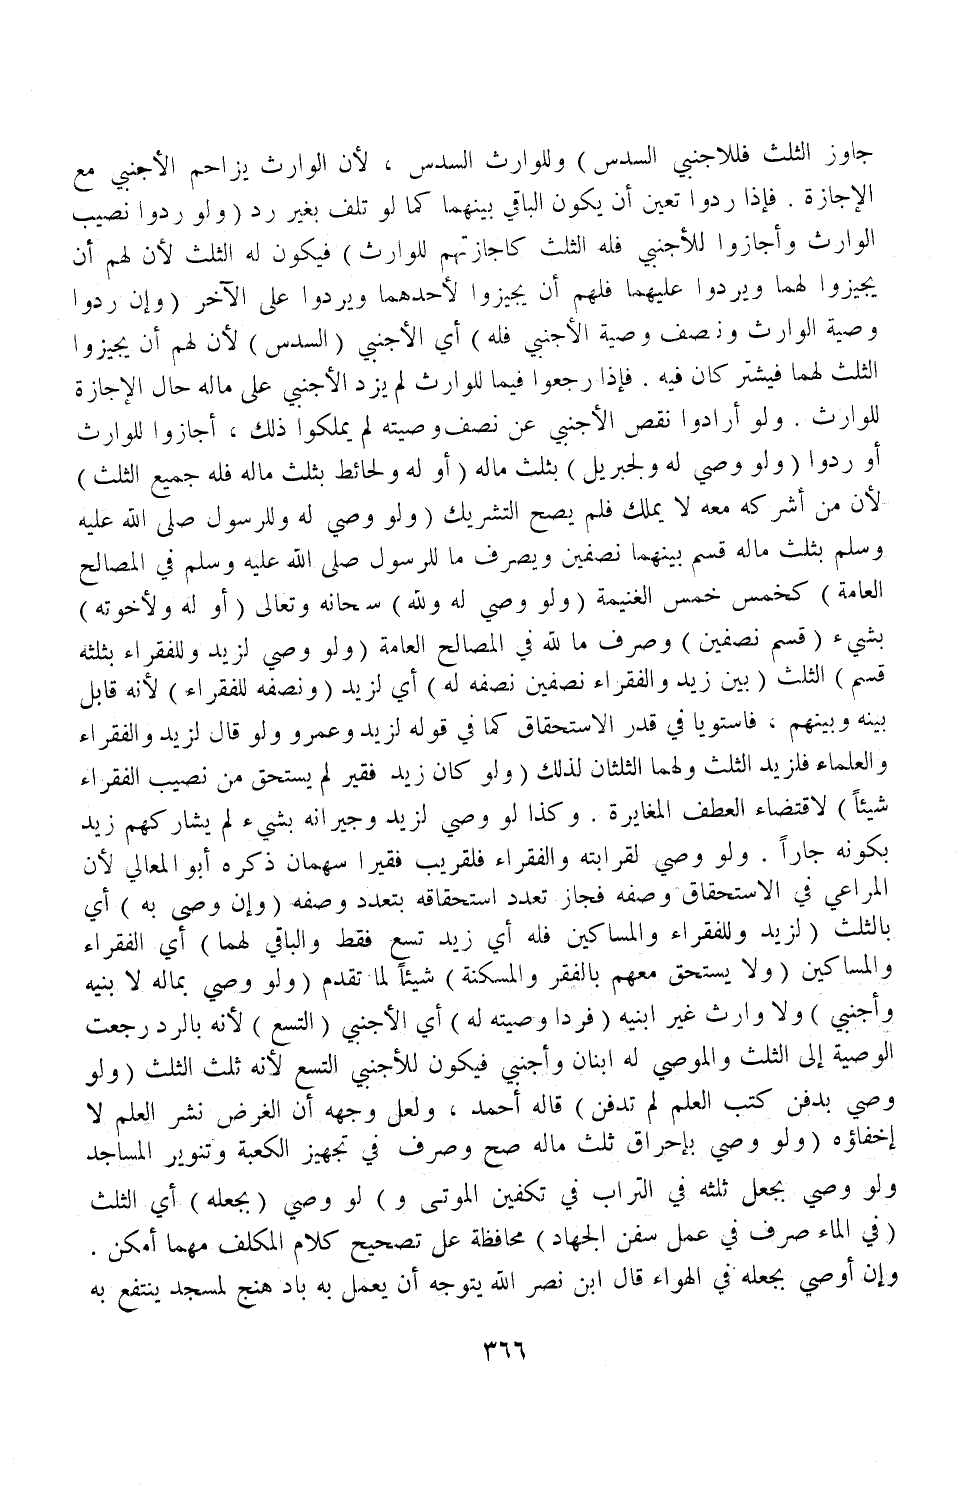 جاوز الثلث فللاجنبي السدس ) وللوارث السدس ، لأن الوارث يزاحم الأجنبي مع
الإجازة . فإذا ردوا تعين أن يكون الباقي بينهما كما لو تلف بغير رد ( ولو ردوا نصيب
الوارث وأجازوا للأجنبي فله الثلث كاجازتهم للوارث ) فيكون له الثلث لأن لهم أن
يجيزوا لهما ويردوا عليهما فلهم أن يجيزوا لأحدهما ويردوا على الآخر ( وإن ردوا
وصية الوارث ونصف وصية الأجنبي فله ) أي الأجنبي ( السدس ) لأن لهم أن يجيزوا
الثلث لهما فيشتركان فيه . فإذا رجعوا فيما للوارث لم يزد الأجنبي على ماله حال الإجازة
للوارث . ولو أرادوا نقص الأجنبي عن نصف وصيته لم يملكوا ذلك ، أجازوا للوارث
أو ردوا ( ولو وصي له ولجبريل ) بثلث ماله ( أو له ولحائط بثلث ماله فله جميع الثلث )
لأن من أشركه معه لا يملك فلم يصح التشريك ( ولو وصي له وللرسول صلى الله عليه
وسلم بثلث ماله قسم بينهما نصفين ويصرف ما للرسول صلى الله عليه وسلم في المصالح
العامة ) كخمس خمس الغنيمة ( ولو وصي له ولله ) سحانه وتعالى ( أو له ولأخوته )
بشيء ( قسم نصفين ) وصرف ما لله في المصالح العامة ( ولو وصي لزيد وللفقراء بثلثه
قسم ) الثلث ( بين زيد والفقراء نصفين نصفه له ) أي لزيد ( ونصفه للفقراء ) لأنه قابل
بينه وبينهم ، فاستويا في قدر الاستحقاق كما في قوله لزيد وعمرو ولو قال لزيد والفقراء
والعلماء فلزيد الثلث ولهما الثلثان لذلك ( ولو كان زيد فقير لم يستحق من نصيب الفقراء
شيئاً ) لاقتضاء العطف المغايرة . وكذا لو وصي لزيد وجيرانه بشيء لم يشاركهم زيد
بكونه جاراً . ولو وصي لقرابته والفقراء فلقريب فقيرا سهمان ذكره أبو المعالي لأن
المراعي في الاستحقاق وصفه فجاز تعدد استحقاقه بتعدد وصفه ( وإن وصى به ) أي
بالثلث ( لزيد وللفقراء والمساكين فله أي زيد تسع فقط والباقي لهما ) أي الفقراء
والمساكين ( ولا يستحق معهم بالفقر والمسكنة ) شيئاً لما تقدم ( ولو وصي بماله لا بنيه
وأجنبي ) ولا وارث غير ابنيه ( فردا وصيته له ) أي الأجنبي ( التسع ) لأنه بالرد رجعت
الوصية إلى الثلث والموصي له ابنان وأجنبي فيكون للأجنبي التسع لأنه ثلث الثلث ( ولو
وصي بدفن كتب العلم لم تدفن ) قاله أحمد ، ولعل وجهه أن الغرض نشر العلم لا
إخفاؤه ( ولو وصي بإحراق ثلث ماله صح وصرف في تجهيز الكعبة وتنوير المساجد
ولو وصي بجعل ثلثه في التراب في تكفين الموتى و ) لو وصي ( بجعله ) أي الثلث
( في الماء صرف في عمل سفن الجهاد ) محافظة على تصحيح كلام المكلف مهما أمكن .
وإن أوصي بجعله في الهواء قال ابن نصر الله يتوجه أن يعمل به باد هنج لمسجد ينتفع به
٣٦٦